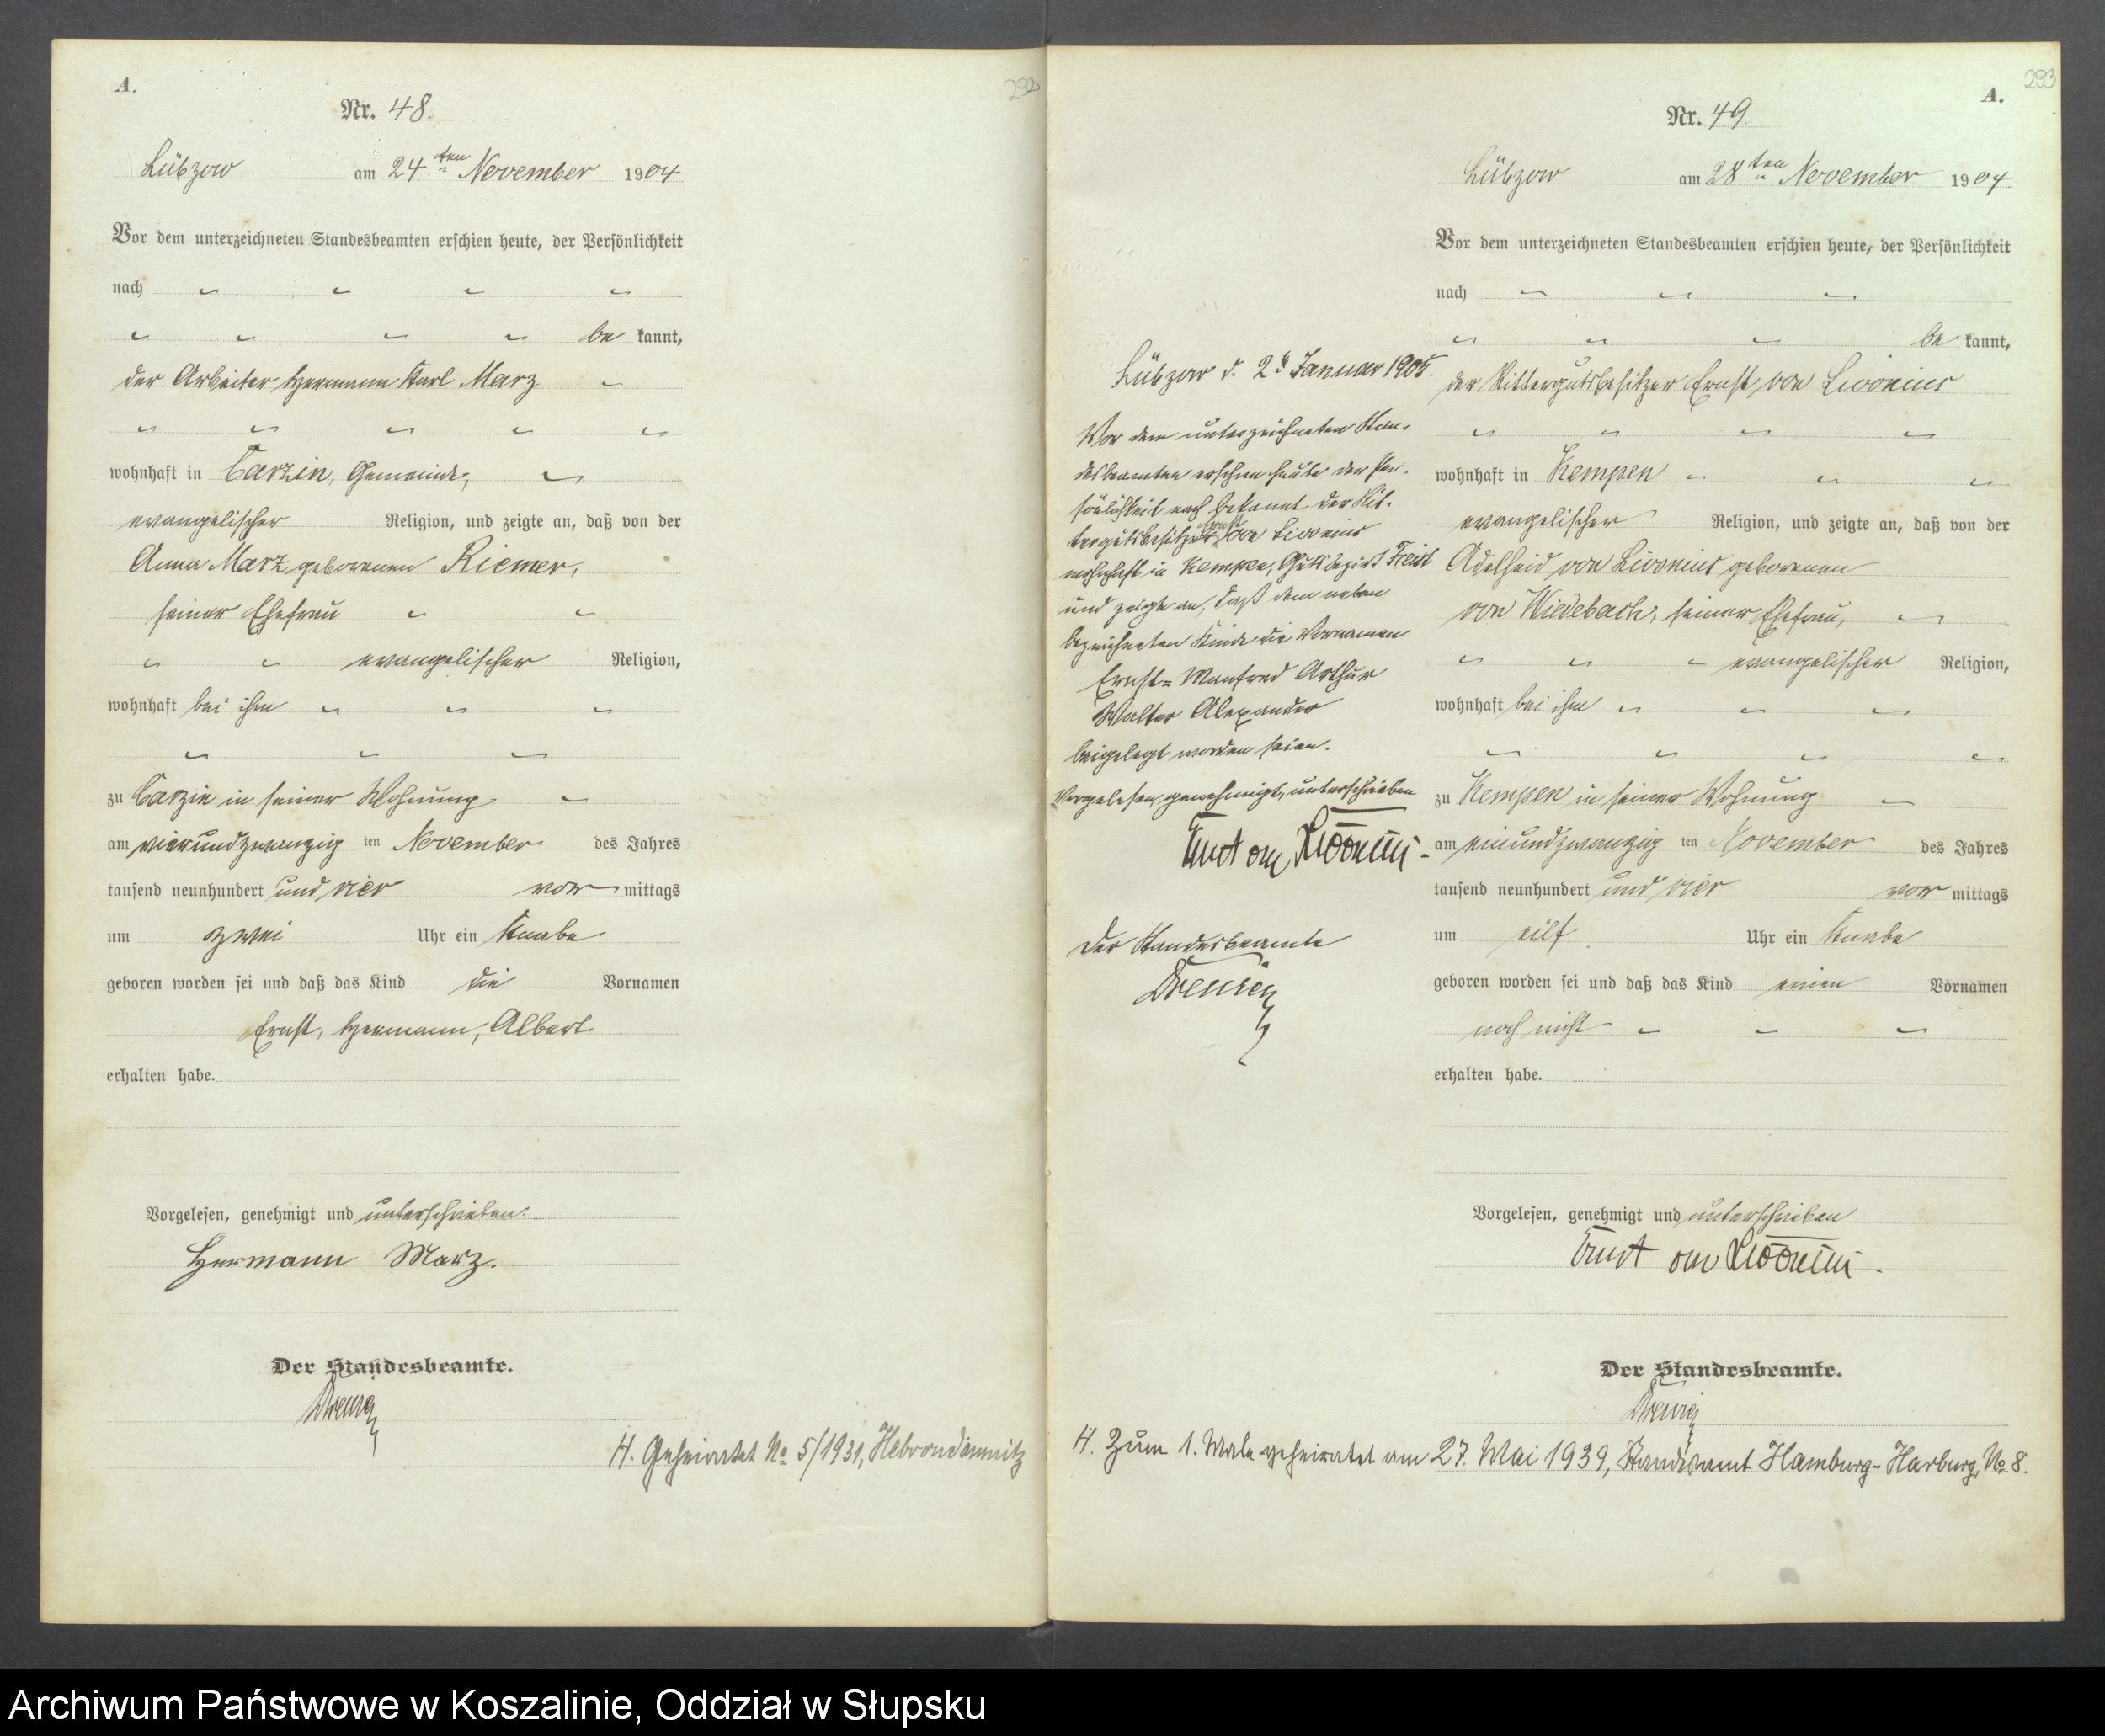 A.
292
Nr. 48.
Lübzow am 24ten November 1904
Vor dem unterzeichneten Standesbeamten erschien heute, der Persönlichkeit
nach
be kannt,
der Arbeiter Hermann Karl Marz
wohnhaft in Carzin, Gemeinde,
evangelischer Religion, und zeigte an, daß von der
Anna Marz geborenen Riemer,
seiner Ehefrau
evangelischer Religion,
wohnhaft bei ihm
zu Carzin in seiner Wohnung
am vierundzwanzig ten November des Jahres
tausend neunhundert und vier vor mittags
um zwei Uhr ein Knabe
geboren worden sei und daß das Kind die Vornamen
Ernst, Hermann, Albert
erhalten habe.
Vorgelesen, genehmigt und unterschrieben.
Hermann Marz.
Der Standesbeamte.
H. Geheiratet No 5/1931, Hebrondamnitz
293
A.
Nr. 49.
Lübzow am 28ten November 1904
Vor dem unterzeichneten Standesbeamten erschien heute, der Persönlichkeit
nach
be kannt,
der Rittergutsbesitzer Ernst von Livonius
wohnhaft in Kempen
evangelischer Religion, und zeigte an, daß von der
Adelheid von Livonius geborenen
von Wiedebach, seiner Ehefrau,
evangelischer Religion,
wohnhaft bei ihm
zu Kempen in seiner Wohnung
am einundzwanzig ten November des Jahres
tausend neunhundert und vier vor mittags
um eilf Uhr ein Knabe
geboren worden sei und daß das Kind einen Vornamen
noch nicht
erhalten habe.
Vorgelesen, genehmigt und unterschrieben
Ernst von Livonius.
Der Standesbeamte.
Lübzow d. 2t Januar 1905.
Vor dem unterzeichneten Stan-
desbeamten erschien heute der Per-
sönlichkeit nach bekannt der Rit-
tergutsbesitzer Ernst von Livonius
wohnhaft in Kempen, Gutsbezirk Freist
und zeigte an, daß dem neben
bezeichneten Kinde die Vornamen
Ernst-Manfred Arthur
Walter Alexander
beigelegt worden seien.
Vorgelesen, genehmigt, unterschrieben
Ernst von Livonius.
Der Standesbeamte
H. Zum 1. Male geheiratet am 27. Mai 1939, Standesamt Hamburg-Harburg, No 8.
Archiwum Państwowe w Koszalinie, Oddział w Słupsku